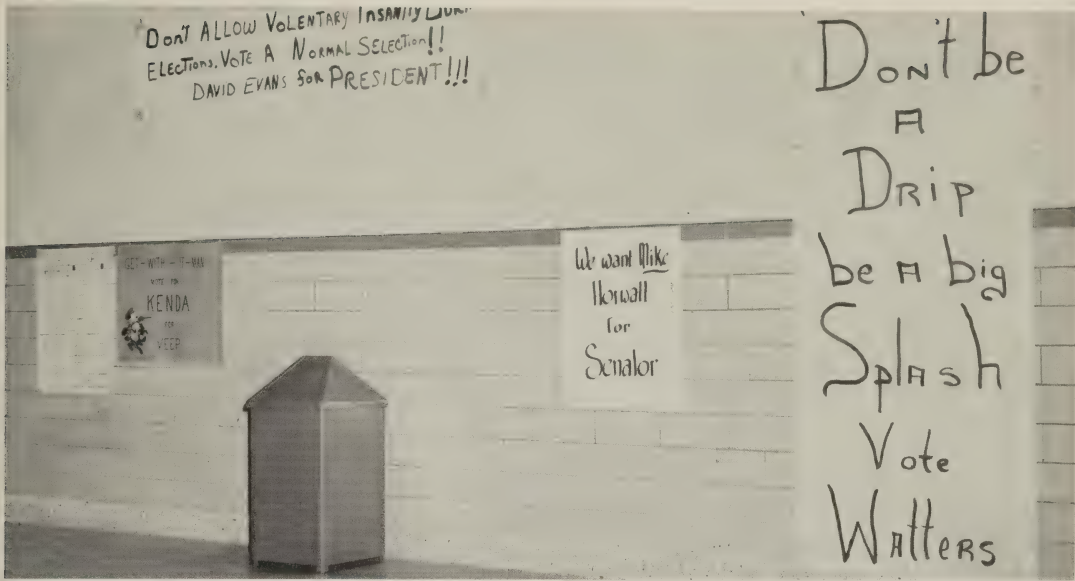 Don't ALLOW VOLENTARY INSANITY
ELECTIONS. VOTE A NORMAL SELECTION!!
DAVID EVANS FOR PRESIDENT!!!
GET-WITH-IT-MAN
VOTE FOR
KENDA
FOR
VEEP
We want Mike
Horwatt
for
Senator
Don't be
A
Drip
be A big
Splash
Vote
Watters